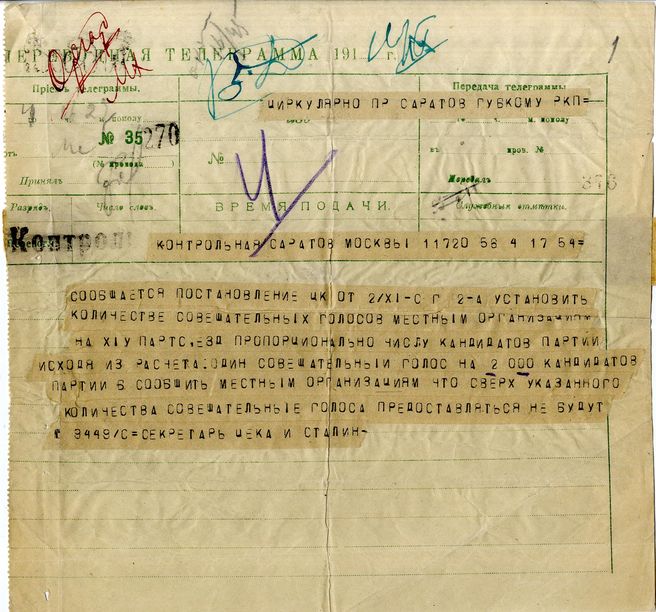 ТЕЛЕГРАММА 191 г.
1
Пріемъ телеграммы.
Передача телеграммы
ЦИРКУЛЯРНО ПР САРАТОВ ГУБКОМУ РКП=
м. пополу
ч. м. пополу
№ 35270
№
въ пров. №
(№ провода)
Принялъ
Передалъ
376
Разрядъ. Число словъ.
ВРЕМЯ ПОДАЧИ.
Служебныя отмѣтки.
КОНТРОЛЬНАЯ САРАТОВ МОСКВЫ 11720 58 4 17 54=
СООБЩАЕТСЯ ПОСТАНОВЛЕНИЕ ЦК ОТ 2/XI-С Г 2-А УСТАНОВИТЬ
КОЛИЧЕСТВЕ СОВЕЩАТЕЛЬНЫХ ГОЛОСОВ МЕСТНЫМ ОРГАНИЗАЦИЯМ
НА XIУ ПАРТС,ЕЗД ПРОПОРЦИОНАЛЬНО ЧИСЛУ КАНДИДАТОВ ПАРТИИ
ИСХОДЯ ИЗ РАСЧЕТА:ОДИН СОВЕЩАТЕЛЬНЫЙ ГОЛОС НА 2 000 КАНДИДАТОВ
ПАРТИИ Б СООБЩИТЬ МЕСТНЫМ ОРГАНИЗАЦИЯМ ЧТО СВЕРХ УКАЗАННОГО
КОЛИЧЕСТВА СОВЕЩАТЕЛЬНЫЕ ГОЛОСА ПРЕДОСТАВЛЯТЬСЯ НЕ БУДУТ
9449/С=СЕКРЕТАРЬ ЦЕКА И СТАЛИН-